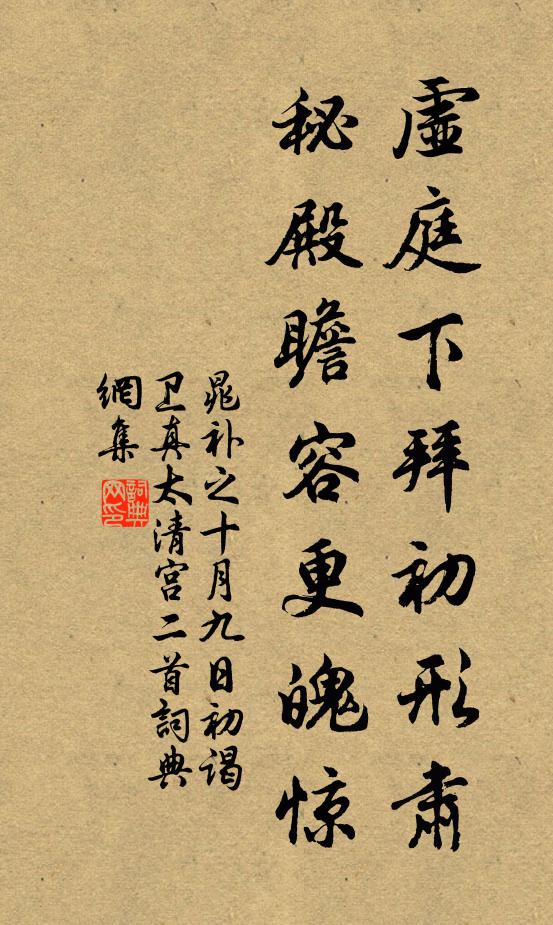 虛庭下拜初形肅
秘殿瞻容更魄惊
晁补之十月九日初谒
卫真太清宫二首詞典
網集
詞典網印